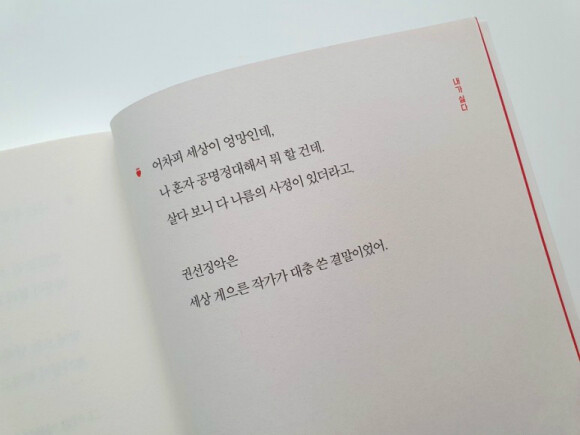 내가 싫다
어차피 세상이 엉망인데,
나 혼자 공명정대해서 뭐 할 건데.
살다 보니 다 나름의 사정이 있더라고.
권선징악은
세상 게으른 작가가 대충 쓴 결말이었어.